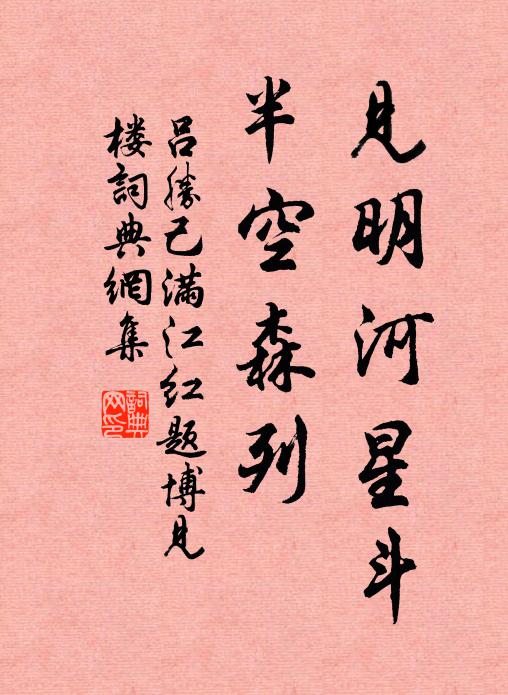 见明河星斗
半空森列
吕勝己满江红题博见
楼詞典網集
詞典网印